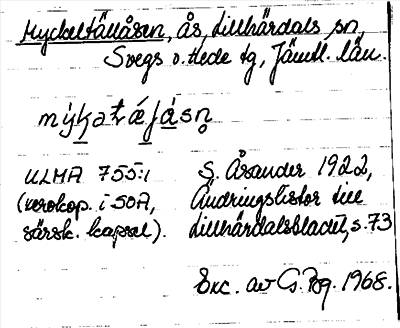 Myckeltällåsen, ås, Lillhärdals sn,
Svegs o. Hede tg, Jämtl. län.
mýkatǽlåsn̥
ULMA 755:1 S. Årsander 1922,
(xerokop. i SOA, Ändringslistor till
särsk. kapsel). Lillhärdalsbladet, s. 73
Exc. av 1968.